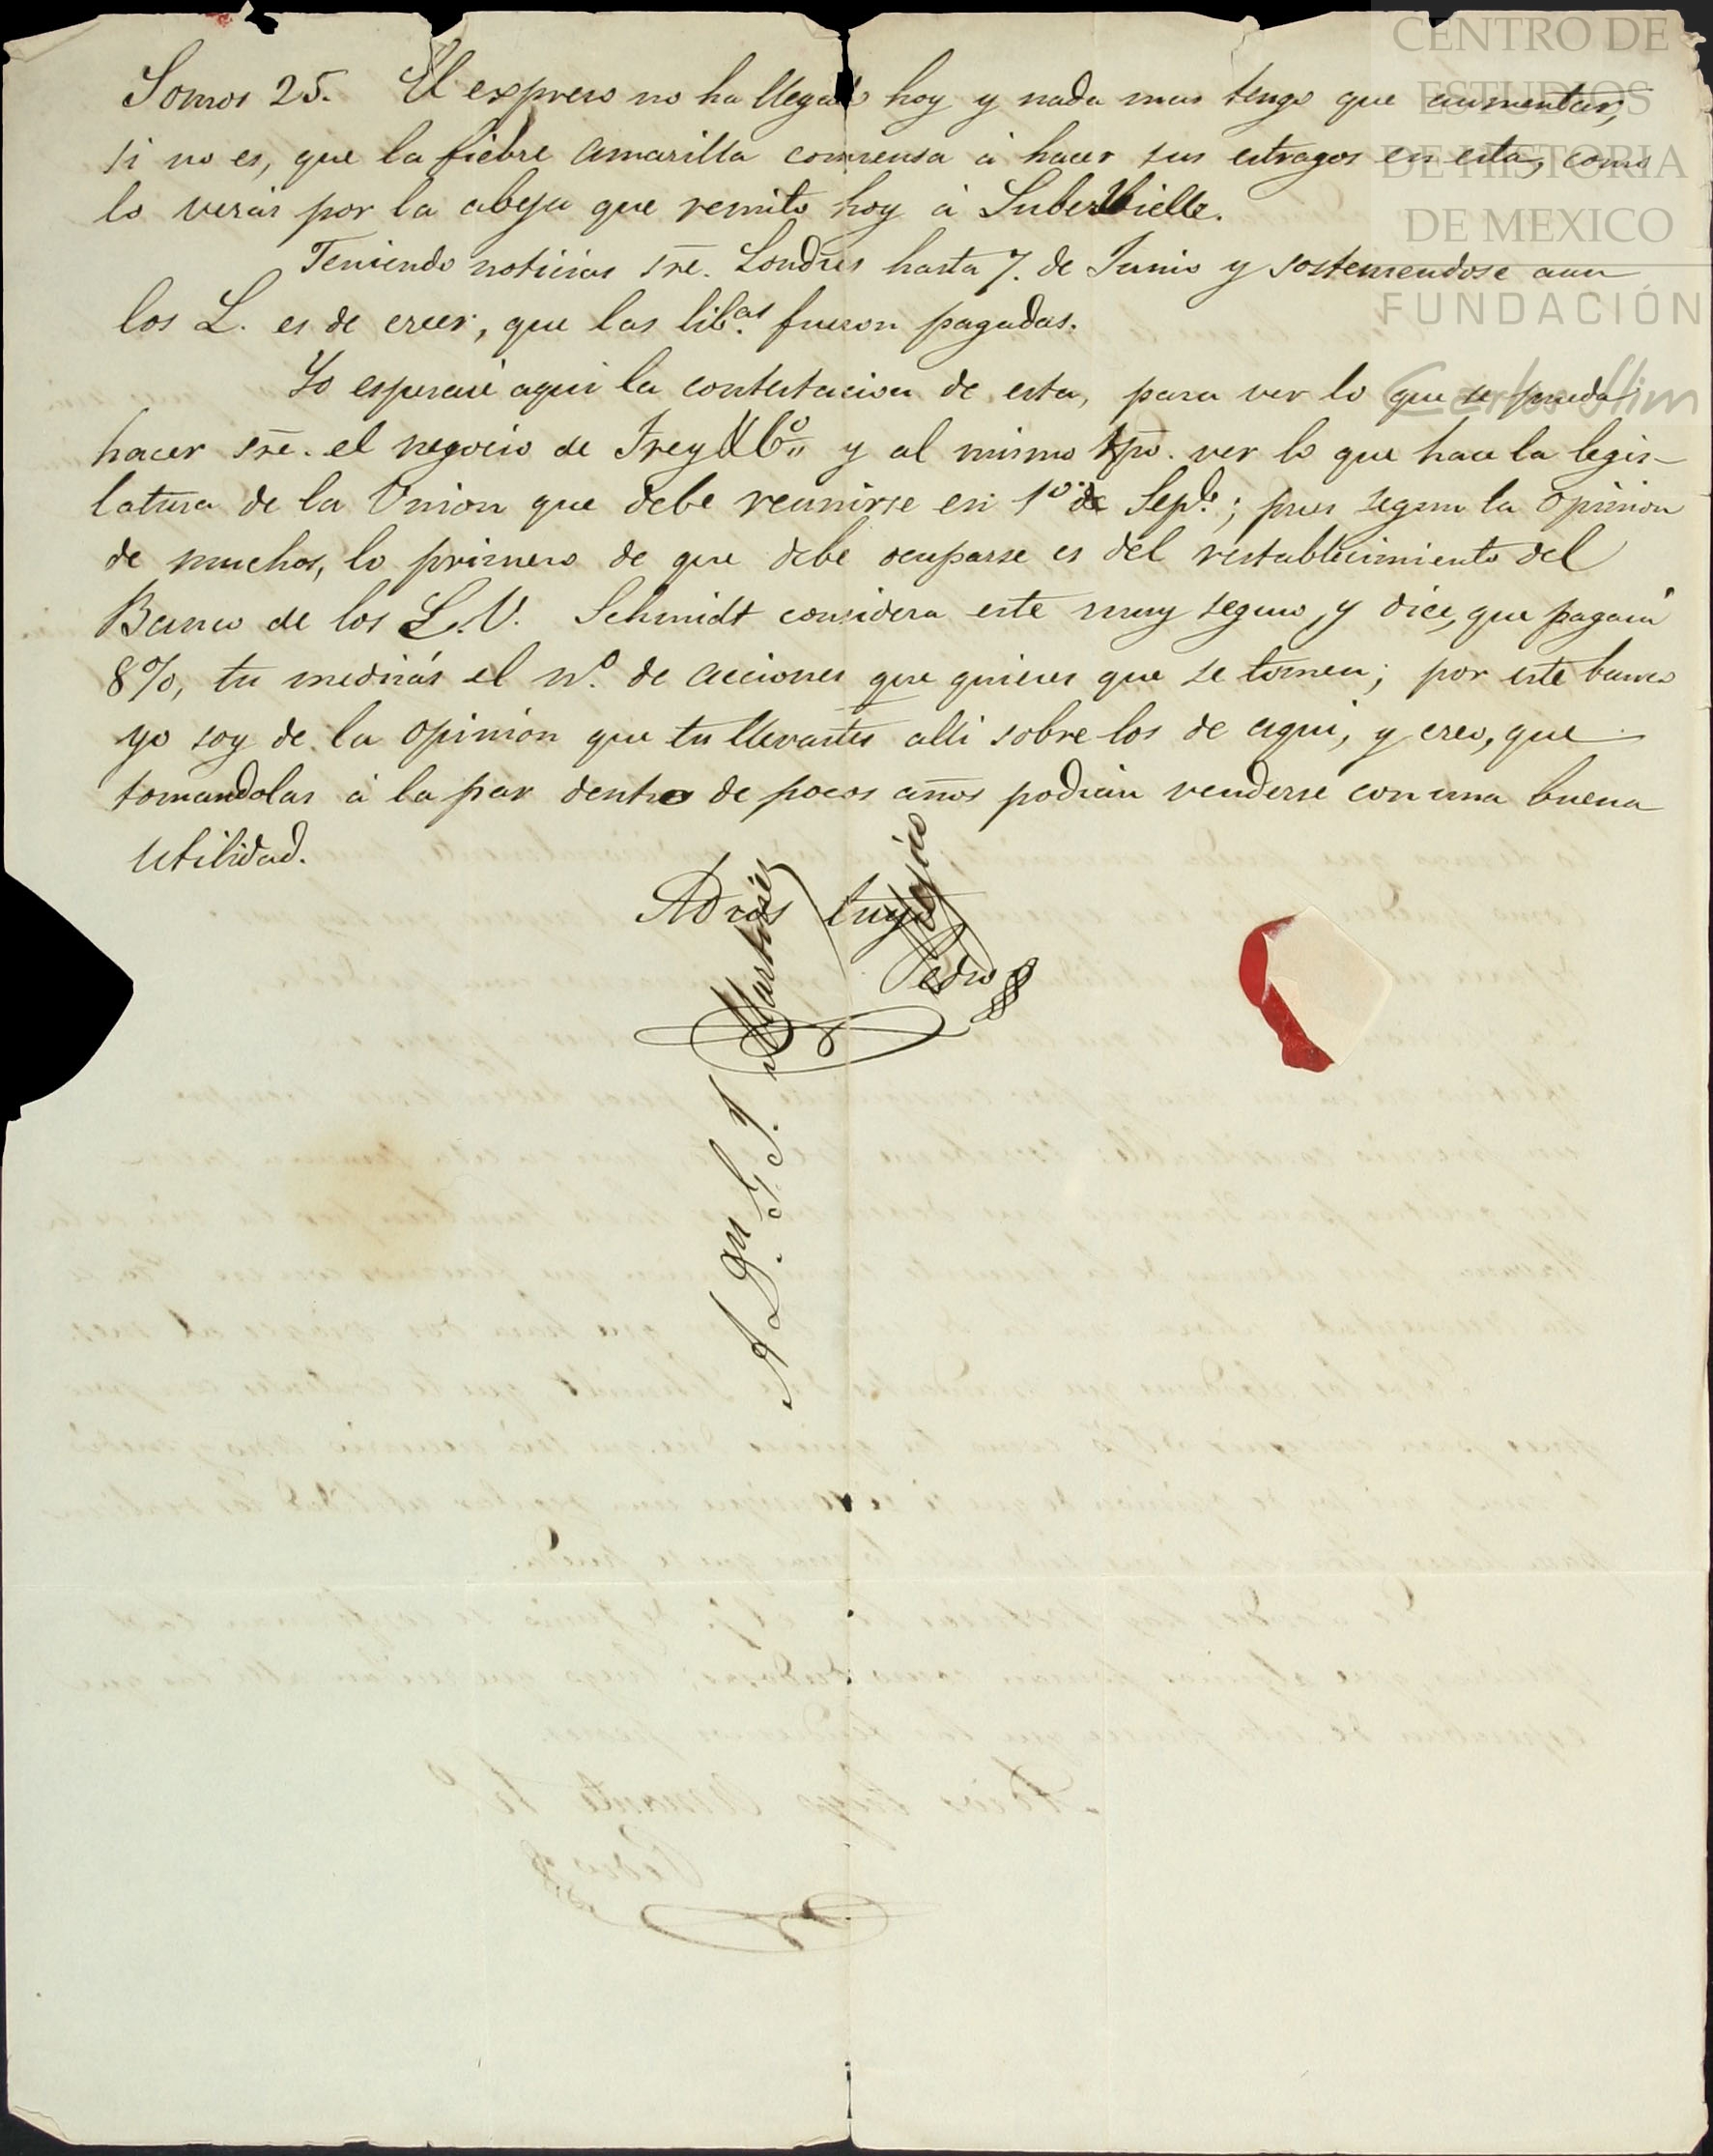 Somos 25. El expreso no ha llegado hoy y nada mas tengo que aumentar,
si no es, que la fiebre amarilla comiensa á hacer sus estragos en esta, como
lo verás por la abeja que remito hoy á Suberbielle.
Teniendo noticias sre. Londres hasta 7. de Junio y sosteniendose aun
los L. es de creer, que las lib.as fueron pagadas.
Yo esperaré aqui la contestacion de esta, para ver lo que se pueda
hacer sre. el negocio de Frey & Co. y al mismo tpo. ver lo que hace la legis-
latura de la Union que debe reunirse en 1o. de Sepe.; pues segun la opinion
de muchos, lo primero de que debe ocuparse es del restablecimiento del
Banco de los L.U. Schmidt considera este muy seguro, y dice, que pagará
8%, tu me dirás el no. de acciones que quieres que se tomen; por este banco
yo soy de la opinion que tu llevastes alli sobre los de aqui, y creo, que
tomandolas á la par dentro de pocos años podrian venderse con una buena
utilidad.
Adios tuyo
Pedro
A Dn G. J. Martinez
CENTRO DE
ESTUDIOS
DE HISTORIA
DE MEXICO
FUNDACIÓN
Carlos Slim